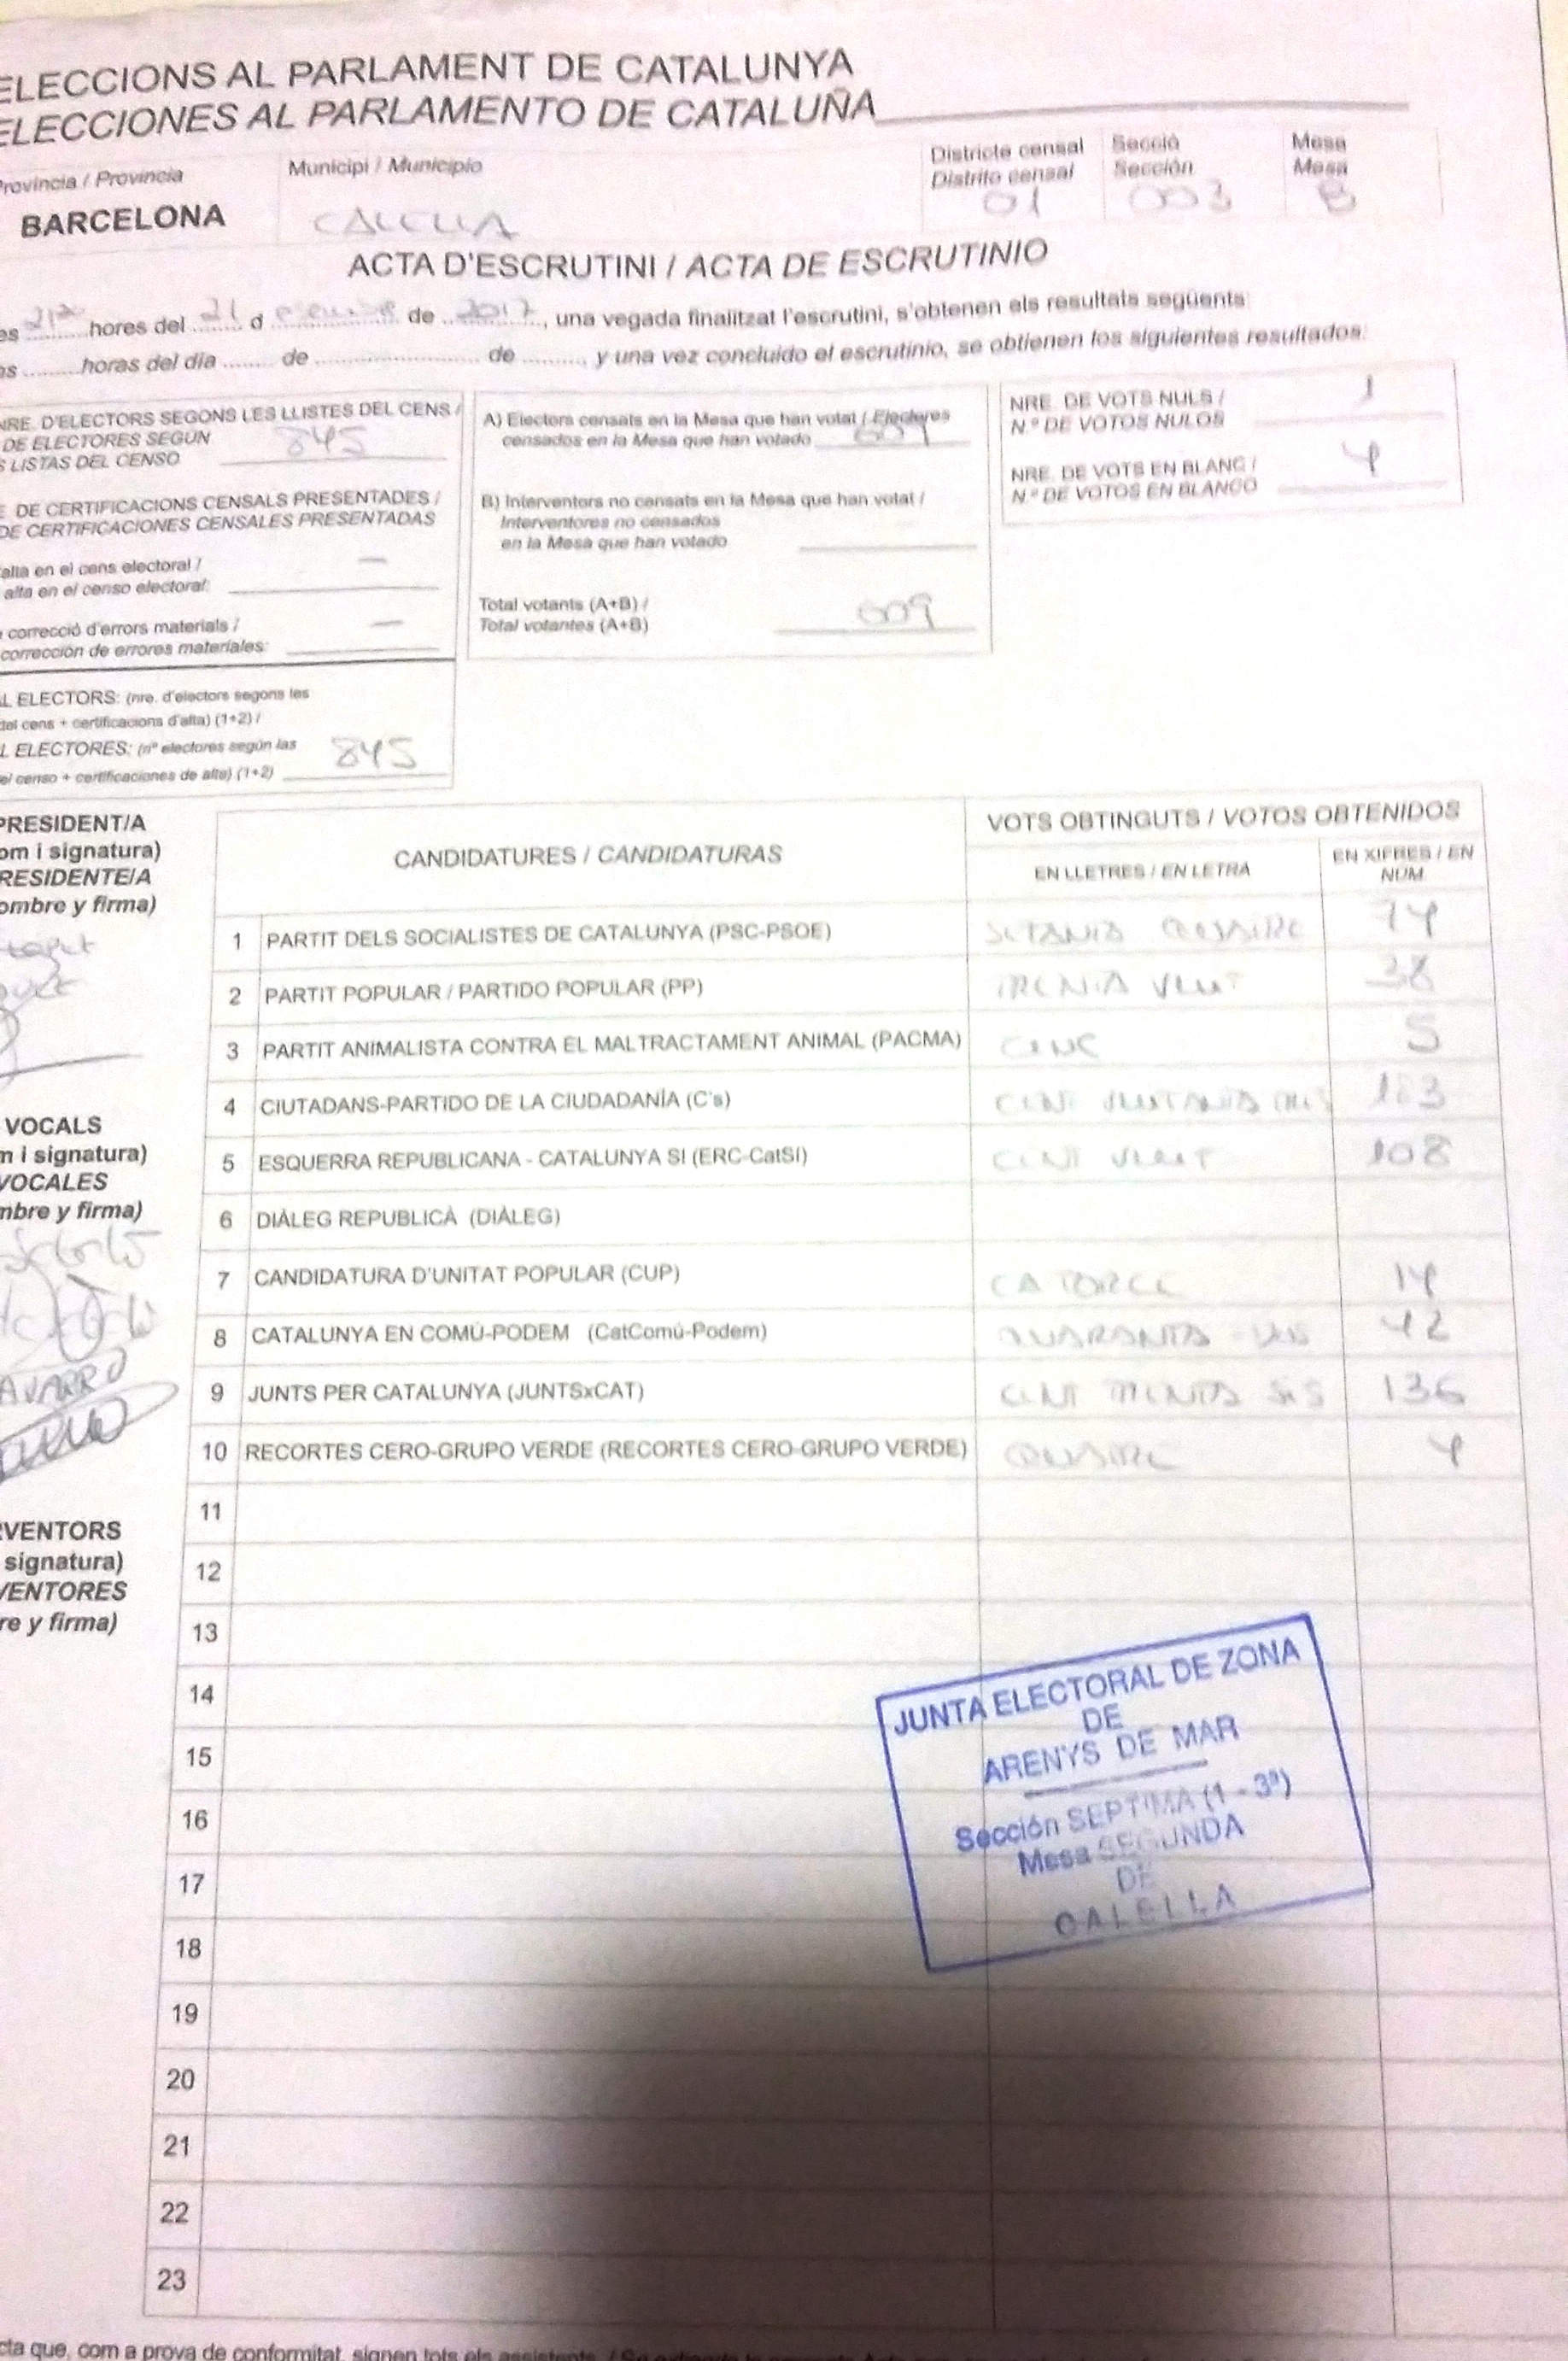 ELECCIONS AL PARLAMENT DE CATALUNYA
ELECCIONES AL PARLAMENTO DE CATALUÑA
Provincia / Provincia
Municipi / Municipio
Districte censal
Distrito censal
Secció
Sección
Mesa
Mesa
BARCELONA
CALELLA
01
003
B
ACTA D'ESCRUTINI / ACTA DE ESCRUTINIO
hores del 21 d de 2017, una vegada finalitzat l'escrutini, s'obtenen els resultats següents:
horas del día ........ de ........................ de .........., y una vez concluido el escrutinio, se obtienen los siguientes resultados:
NRE. D'ELECTORS SEGONS LES LLISTES DEL CENS /
DE ELECTORES SEGÚN
LISTAS DEL CENSO
845
DE CERTIFICACIONS CENSALS PRESENTADES /
DE CERTIFICACIONES CENSALES PRESENTADAS
alta en el cens electoral / —
alta en el censo electoral:
correcció d'errors materials / —
corrección de errores materiales:
ELECTORS: (nre. d'electors segons les
del cens + certificacions d'alta) (1+2) /
ELECTORES: (nº electores según las
censo + certificaciones de alta) (1+2)
845
A) Electors censats en la Mesa que han votat / Electores
censados en la Mesa que han votado
B) Interventors no censats en la Mesa que han votat /
Interventores no censados
en la Mesa que han votado
Total votants (A+B) /
Total votantes (A+B)
609
NRE. DE VOTS NULS /
N.º DE VOTOS NULOS
1
NRE. DE VOTS EN BLANC /
N.º DE VOTOS EN BLANCO
4
PRESIDENT/A
i signatura)
PRESIDENTE/A
y firma)
VOCALS
i signatura)
VOCALES
y firma)
signatura)
y firma)
CANDIDATURES / CANDIDATURAS
VOTS OBTINGUTS / VOTOS OBTENIDOS
EN LLETRES / EN LETRA
EN XIFRES / EN
NUM.
1 PARTIT DELS SOCIALISTES DE CATALUNYA (PSC-PSOE) SETANTA QUATRE 74
2 PARTIT POPULAR / PARTIDO POPULAR (PP) TRENTA VUIT 38
3 PARTIT ANIMALISTA CONTRA EL MALTRACTAMENT ANIMAL (PACMA) CINC 5
4 CIUTADANS-PARTIDO DE LA CIUDADANÍA (C's) CENT 183
5 ESQUERRA REPUBLICANA - CATALUNYA SI (ERC-CatSí) CENT VUIT 108
6 DIÀLEG REPUBLICÀ (DIÀLEG)
7 CANDIDATURA D'UNITAT POPULAR (CUP) CATORCE 14
8 CATALUNYA EN COMÚ-PODEM (CatComú-Podem) QUARANTA - DOS 42
9 JUNTS PER CATALUNYA (JUNTSxCAT) CENT TRENTA SIS 136
10 RECORTES CERO-GRUPO VERDE (RECORTES CERO-GRUPO VERDE) QUATRE 4
11
12
13
14
15
16
17
18
19
20
21
22
23
JUNTA ELECTORAL DE ZONA
DE
ARENYS DE MAR
Sección SEPTIMA (1 - 3ª)
Mesa SEGUNDA
DE
CALELLA
que, com a prova de conformitat, signen tots els assistents. /